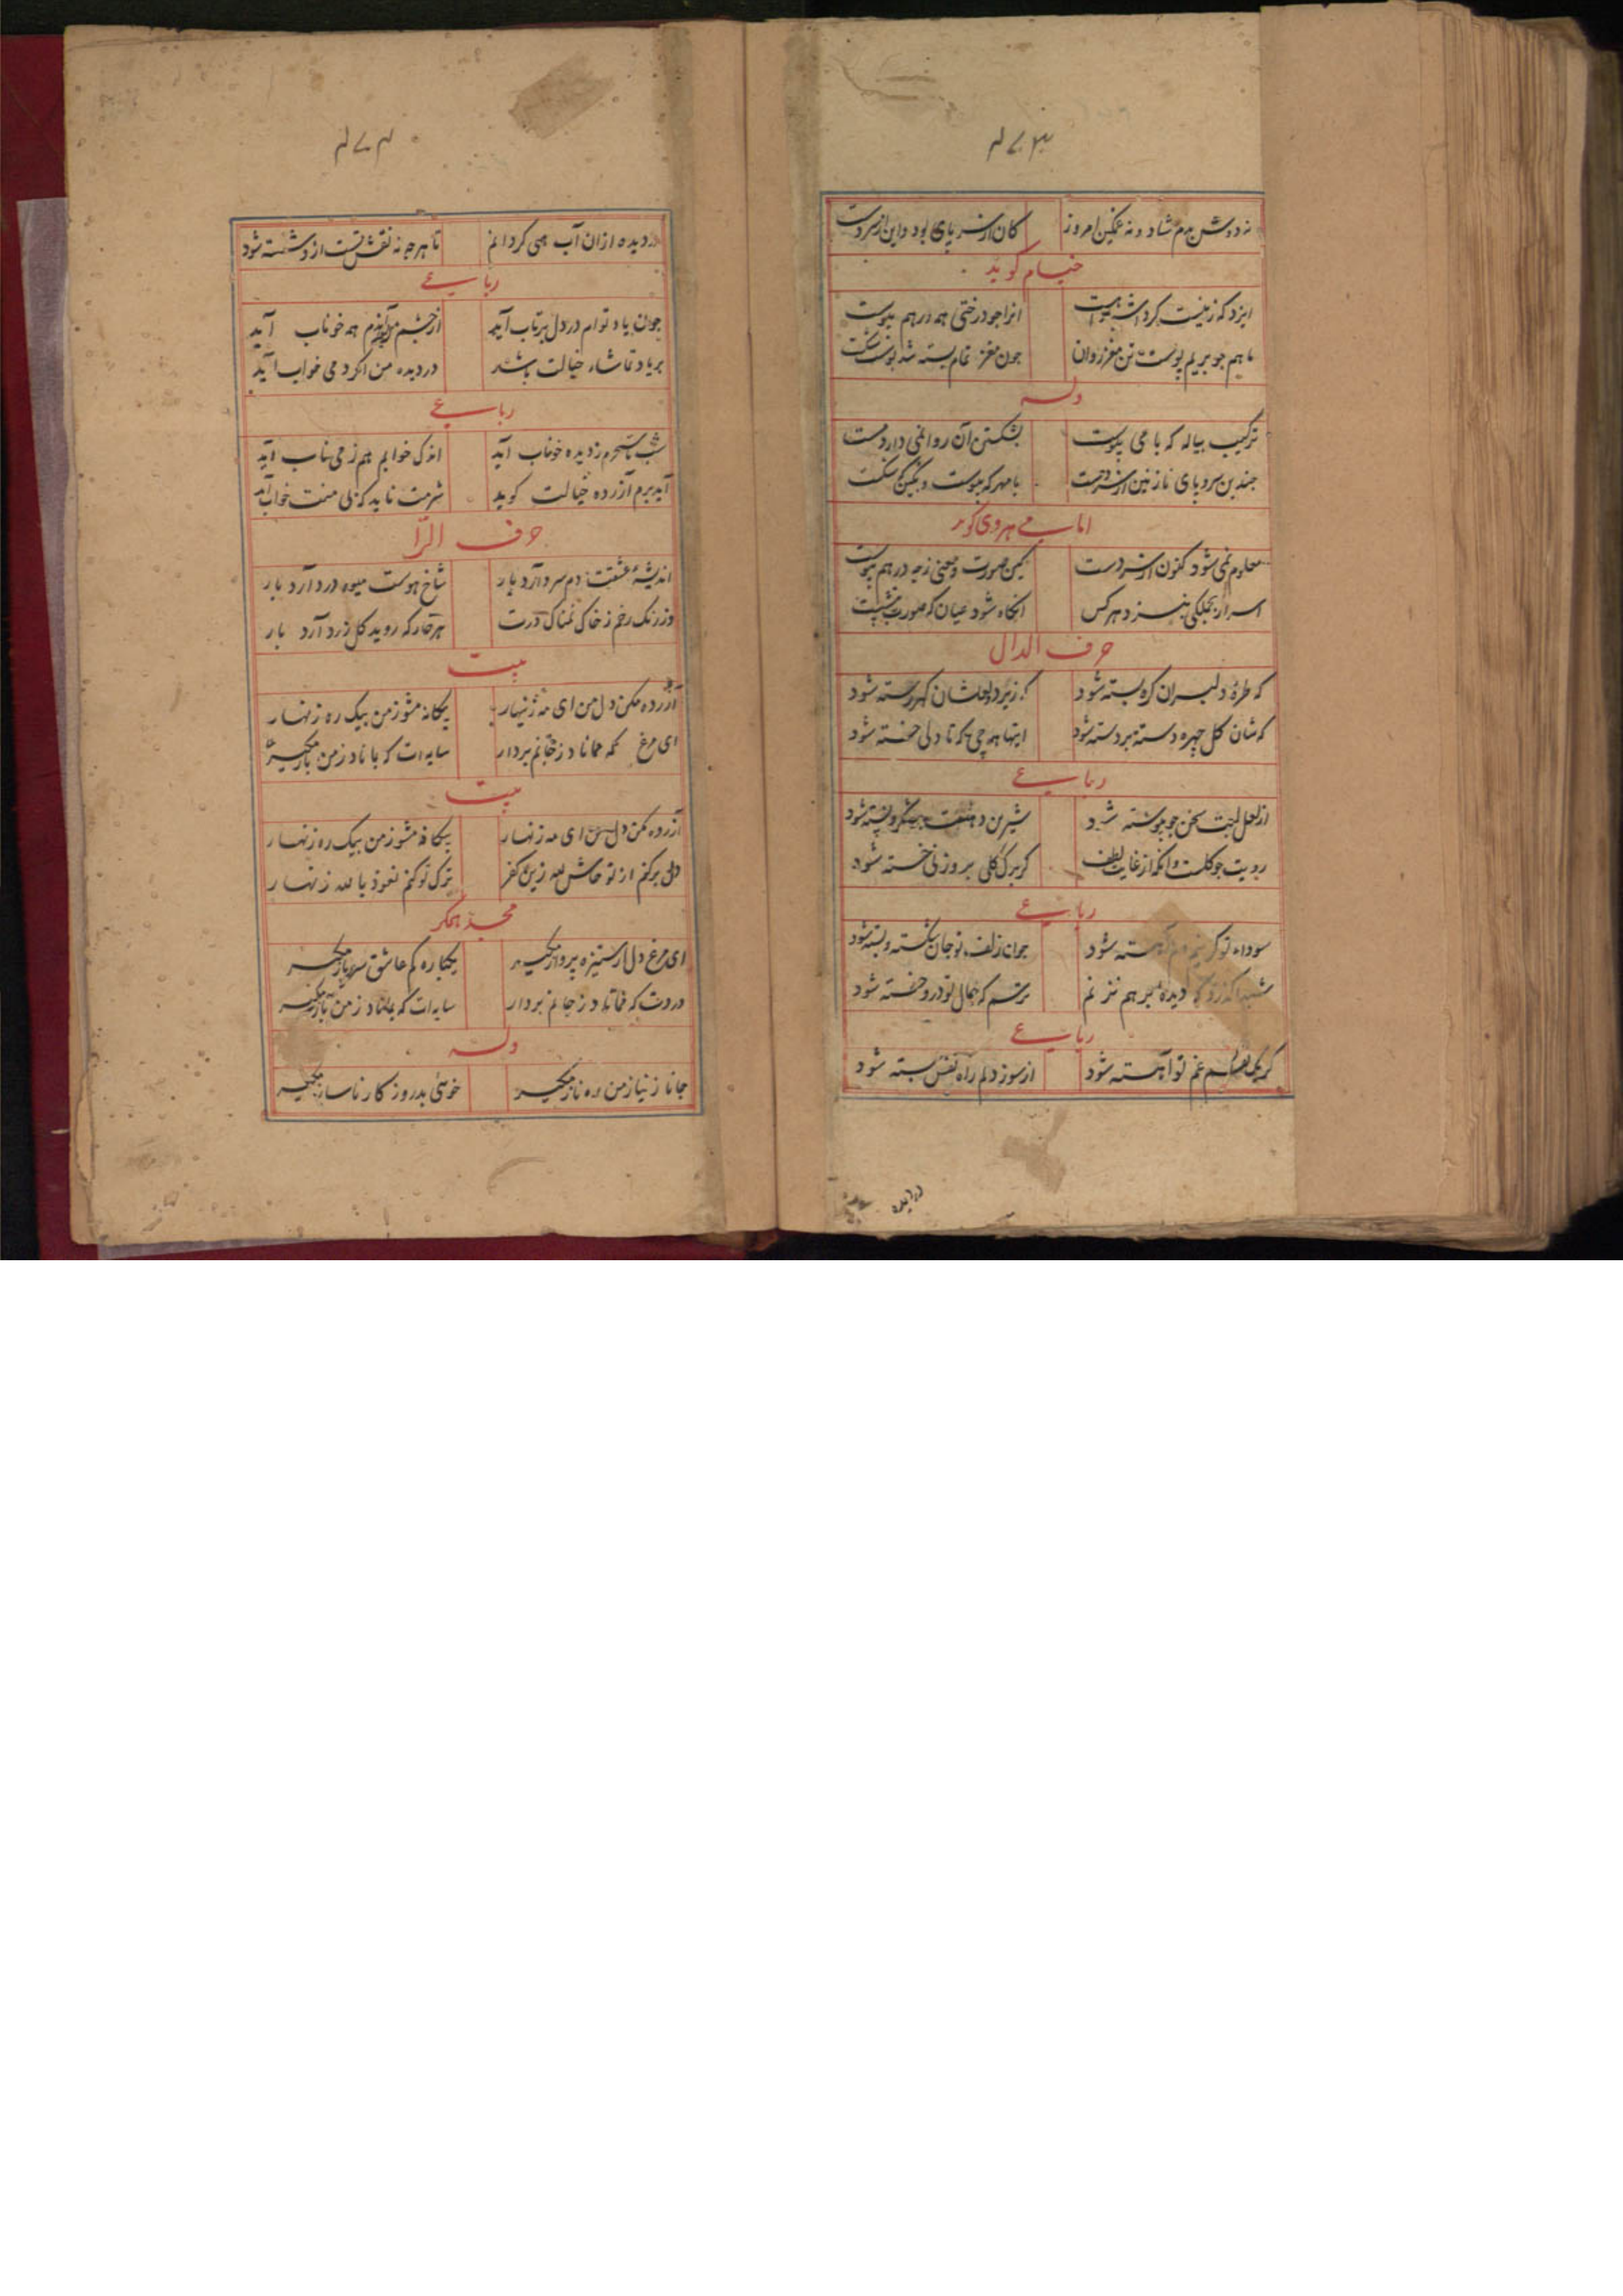 ۴۷۳
نه دوش بدم شاد و نه غمگین امروز کان از سر پای بود و این از سر دست
خیام گوید
ایزد که ز نیست کرد
انرا جو درختی همه درهم پیوست
ماهیم جو بریم پوست تن مغز روان جون مغز تمام بسته شد پوست شکست
وله
ترکیب پیاله که بامی پیوست بشکستن آن روا نمی دارد مست
جندین سر و پای نازنین از سر و دست با مهر که پیوست و بکین که شکست
امامی هروی گوید
معلوم نمی شود کنون از سر دست کین صورت و معنی ز چه در هم پیوست
اسرار بجملگی بنزد هر کس انکاه شود عیان که صورت بشکست
حرف الدال
که طرهٔ دلبران کره بسته شود که زیر در لعلشان کهر رسته شود
که شان کل چهره دسته بر دسته شود اینها همه چی که تا دلی خسته شود
رباعی
از لعل لبت سخن جو پیوسته شود شیرین دهنت
رویت جو کلست وانکه از غایت لطف کر برک کلی بر وزنی خسته شود
رباعی
سوداء تو کر شود جون زلف تو جان شکسته و بسته شود
دیده بر هم نزنم ترسم که جمال تو درو خسته شود
رباعی
کر یک نفسم غم تو آهسته شود از سوز دلم راه نفس بسته شود
در دیده
۴۷۴
در دیده از ان آب همی کردانم تا هرچه نه نقش تست ازو شسته شود
رباعی
جون یاد توام در دل پرتاب آید از چشم همه خوناب آید
بر یاد تماشاء خیالت باشد در دیده من اکر دمی خواب آید
رباعی
شب تا سحرم ز دیده خوناب آید اندک خوابم هم ز می ناب آید
آید برم آزرده خیالت کوید شرمت ناید کز بی منت خواب آید
حرف الرّا
اندیشهٔ عشقت دم سرد آرد بار شاخ هوست میوه درد آرد بار
وز رنک رخم ز خاک نمناک درت هر خار که روید کل زرد آرد بار
بیت
آزرده مکن دل من ای مه زنهار بیکانه مشو ز من بیک ره زنهار
ای مرغ که همانا د ز جانم بردار سایه ات که باناد ز من باز مکیر
بیت
آزرده مکن دل من ای مه زنهار بیکانه مشو ز من بیک ره زنهار
دل برکنم از تو حاش لله زین کفر ترک تو کنم نعوذ بالله زنهار
مجد همکر
ای مرغ دل از ستیزه پرواز مکیر یکباره کم عاشق سرباز مکیر
دردت که مماناد ز جانم بردار سایه ات که بماناد ز من باز مکیر
وله
جانا ز نیاز من ره ناز مکیر خوشی بد روزکار ناساز مکیر